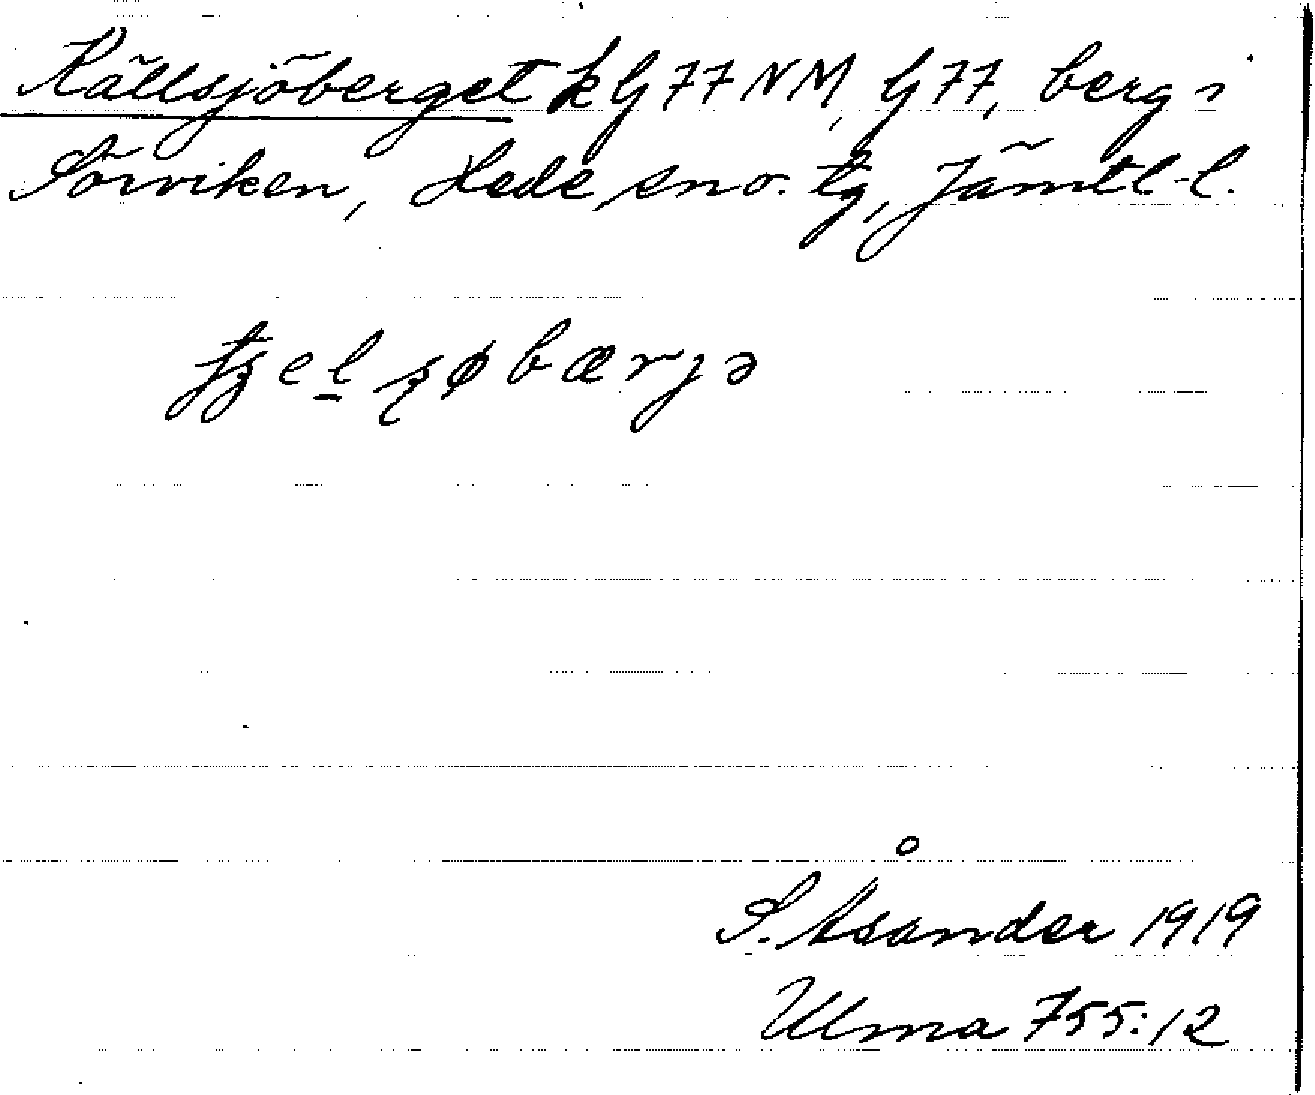 Källsjöberget k G 77 NM, G 77, berg i
Sörviken, Hede sn o. tg, Jämtl. l.
S. Åsander 1919
Ulma 755:12